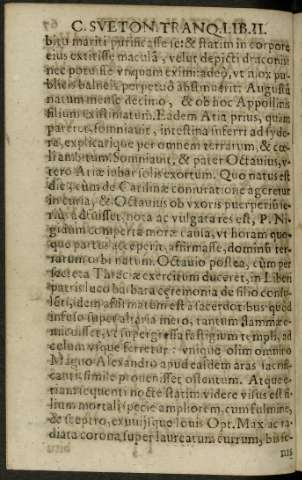 C. SVETON. TRANQ. LIB. II.
bitu mariti purificasse se: & statim in corpore
eius extitisse maculā, velut depicti draconis
nec potuisse vnquam eximi: adeo, vt mox pu-
blicis balneis perpetuò abstinuerit: Augustū
natum mense decimo, & ob hoc Appollinis
filium existimatum. Eadem Atia prius, quàm
pareret, somniauit, intestina sua ferri ad syde-
ra, explicarique per omnem terrarum, & cœ-
li ambitum. Somniauit, & pater Octauius, v-
tero Atiæ iubar solis exortum. Quo natus est
die, cùm de Catilinæ coniuratione ageretur
in curia, & Octauius ob vxoris puerperiū se-
riùs adfuisset, nota ac vulgata res est, P. Ni-
gidium comperta moræ causa, vt horam quo-
que partus acceperit, affirmasse, dominū ter-
rarum orbi natum. Octauio postea, cùm per
secreta Thraciæ exercitum duceret, in Liberi
patris luco barbara ceremonia de filio consu-
lēti, idem affirmatum est à sacerdotibus: quòd
infuso super altaria mero, tantum flammæ e-
micuisset, vt supergressa fastigium templi, ad
cœlum vsque ferretur: vnique olim omnino
Magno Alexandro apud easdem aras sacrifi-
canti, simile prouenisset ostentum. Atque e-
tiam sequenti nocte statim videre visus est fi-
lium mortali specie ampliorem, cum fulmine,
& sceptro, exuuijsque Iouis Opt. Max. ac ra-
diata corona, super laureatum currum, bis se-
nis